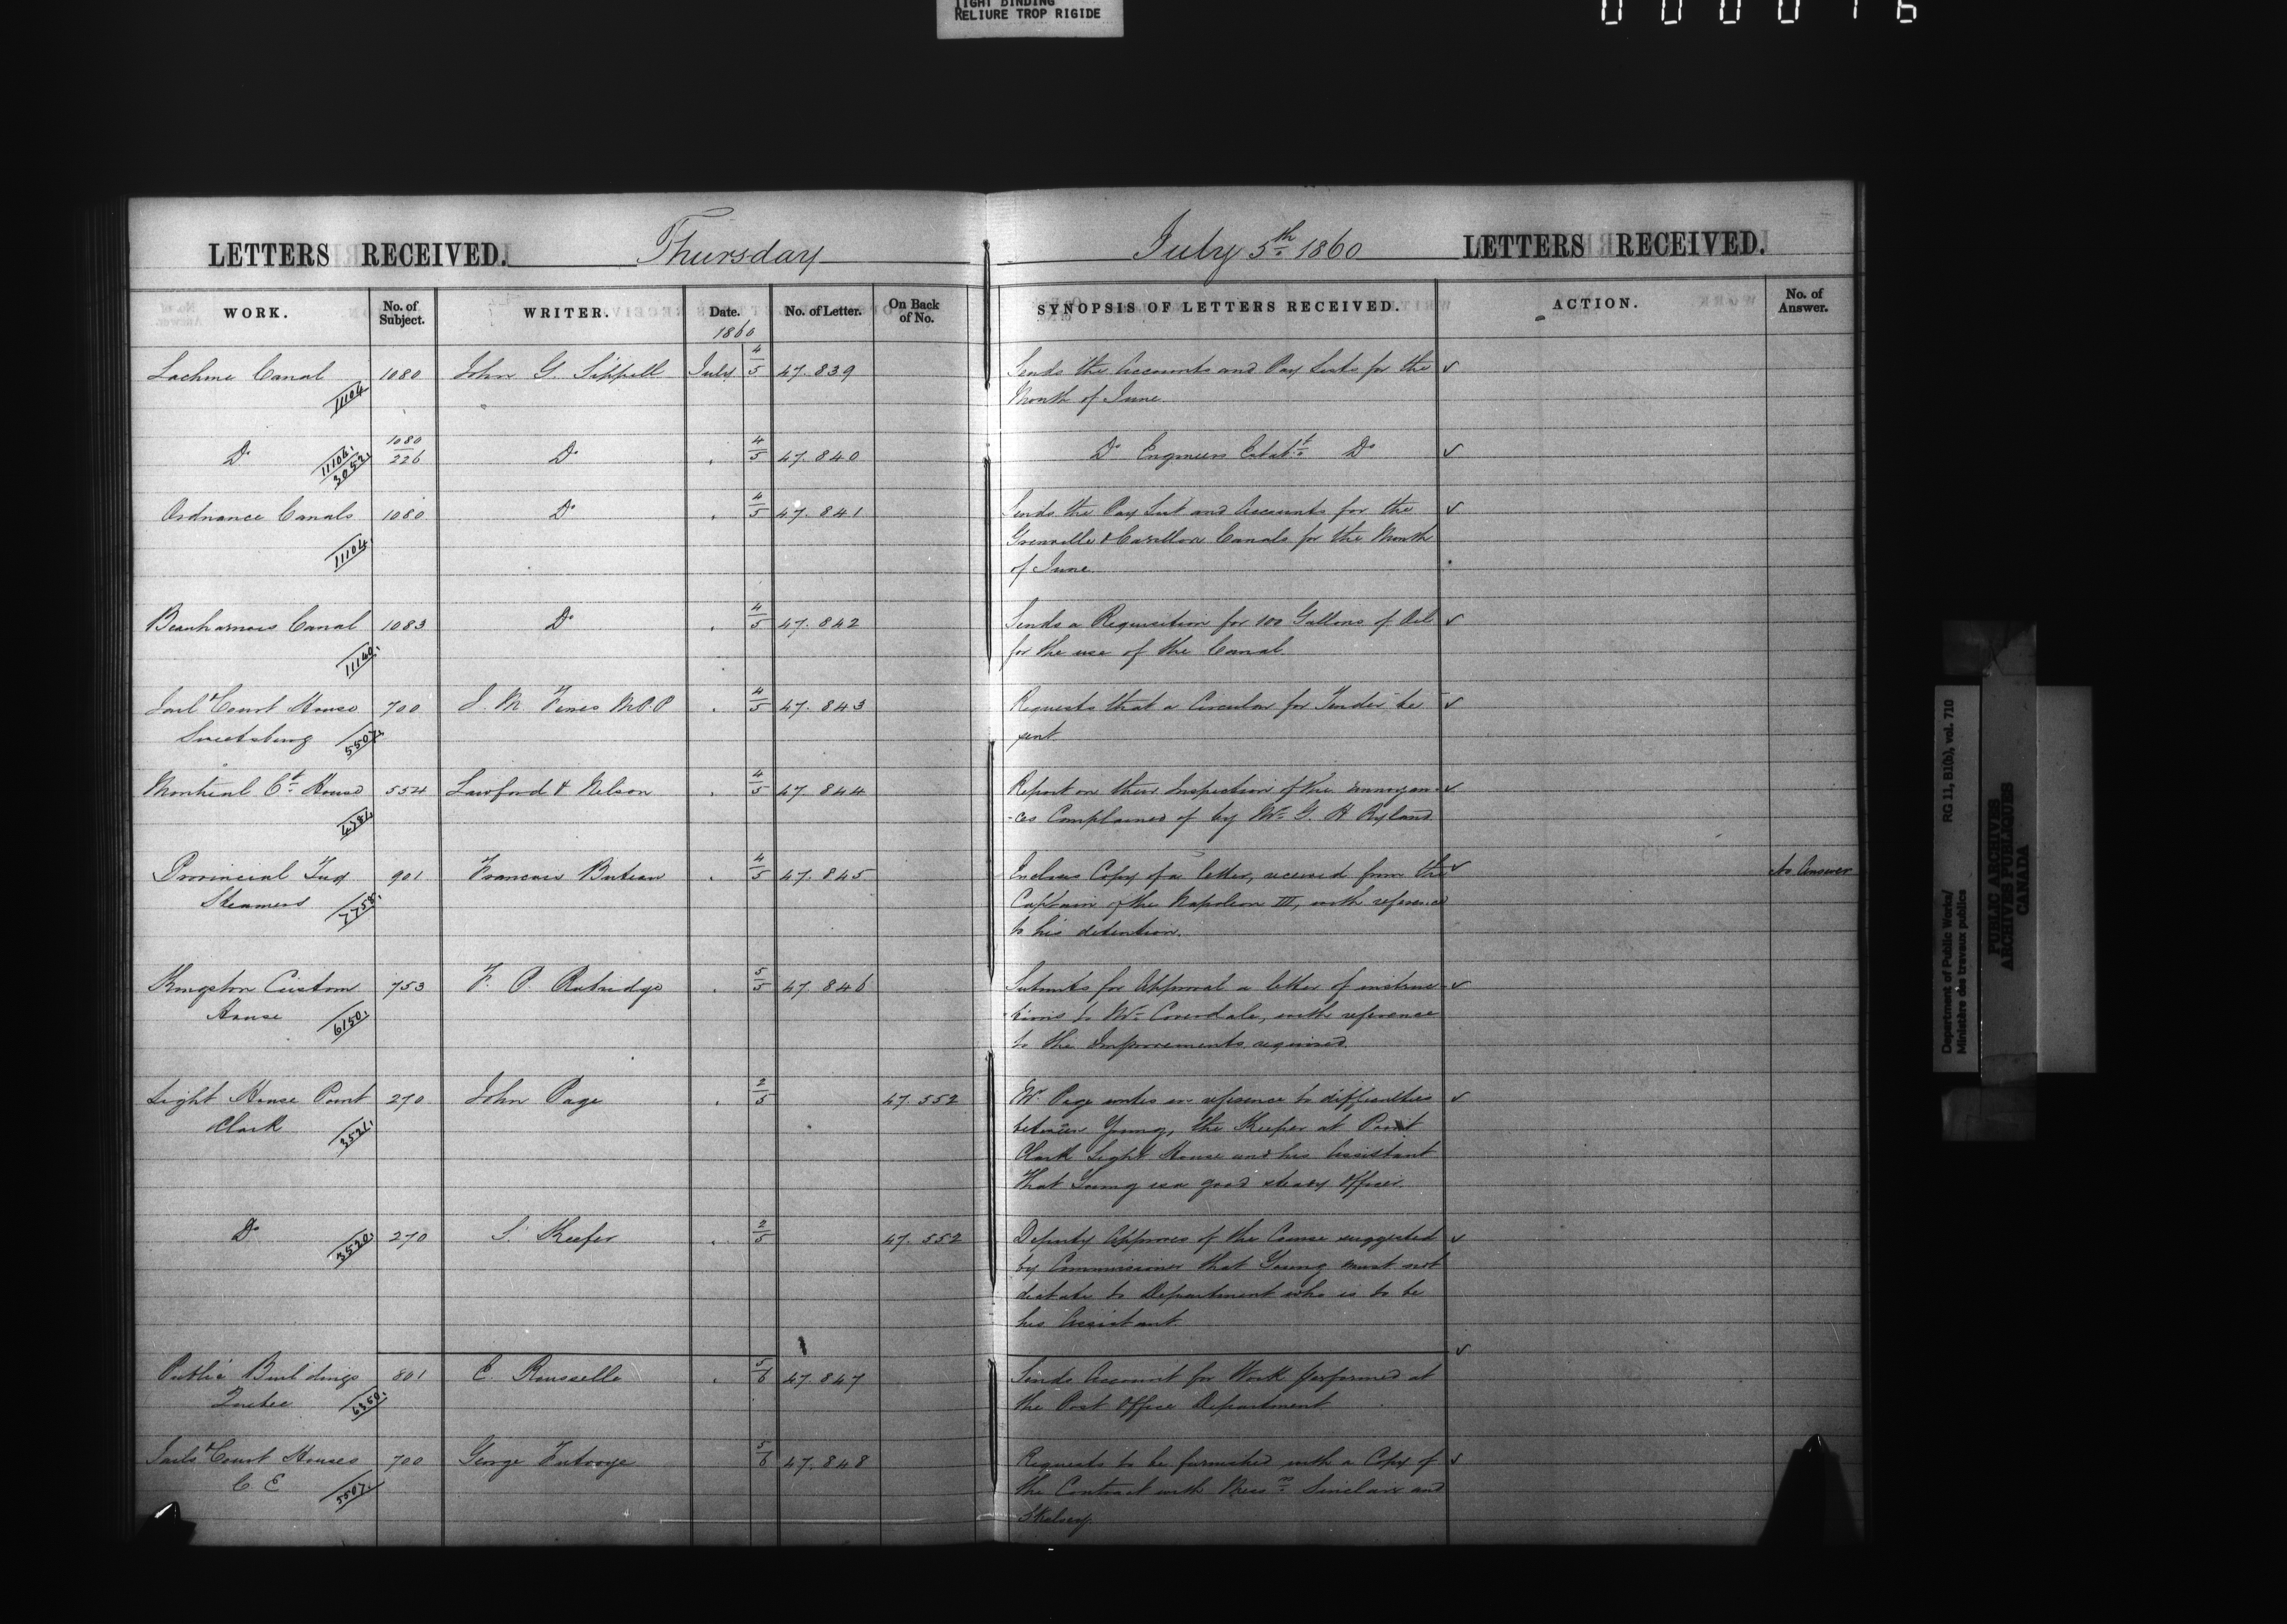 TIGHT BINDING
RELIURE TROP RIGIDE
LETTERS RECEIVED. Thursday July 5th 1860 LETTERS RECEIVED.
WORK. No. of Subject. WRITER. Date. No. of Letter. On Back of No. SYNOPSIS OF LETTERS RECEIVED. ACTION. No. of Answer.
1860
Lachine Canal 1080 John G. Sippell July 4/5 47.839 Sends the Accounts and Pay Lists for the
11104 Month of June.
Do 1080/226 Do 4/5 47.840 Do Engineers Establt Do
11106. 3052.
Ordnance Canals 1080 Do 4/5 47.841 Sends the Pay List and Accounts for the
11104 Grenville & Carillon Canals for the Month
of June.
Beauharnois Canal 1083 Do 4/5 47.842 Sends a Requisition for 100 Gallons of Oil
11140. for the use of the Canal.
Jail & Court House 700 4/5 47.843 Requests that a Circular for Tender be
Sweetsburg 5507. sent.
Montreal Ct House 554 Lawford & Nelson 4/5 47.844 Report on their Inspection of the annoyan-
-ces Complained of by Mr G. H Ryland.
Provincial Tug 901 Francois Buteau 4/5 47.845 Encloses Copy of a letter, received from the No Answer
Steamers 7758. Captain of the Napoleon III, with reference
to his detention.
Kingston Custom 753 F. P. Rubridge 5/5 47.846 Submits for Approval a letter of instruc-
House 6150. -tions to Mr Coverdale, with reference
to the Improvements required.
Light House Point 270 John Page 2/5 47.552 Mr Page writes in reference to difficulties
Clark 3521. between Young, the Keeper at Point
Clark Light House and his Assistant
That Young is a good steady Officer.
Do 270 S. Keefer 2/5 47.552 Deputy Approves of the Course suggested
3520. by Commissioner that Young must not
dictate to Department who is to be
his Assistant.
Public Buildings 801 E. Rousselle 5/6 47.847 Sends Account for Work performed at
Quebec 6360. the Post Office Department.
Jails & Court Houses 700 George Futvoye 5/6 47.848 Requests to be furnished with a Copy of
C. E 5507. the Contract with Messrs Sinclair and
Skelsey.
Department of Public Works/ RG 11, B1(b), vol. 710
Ministère des travaux publics
PUBLIC ARCHIVES
ARCHIVES PUBLIQUES
CANADA